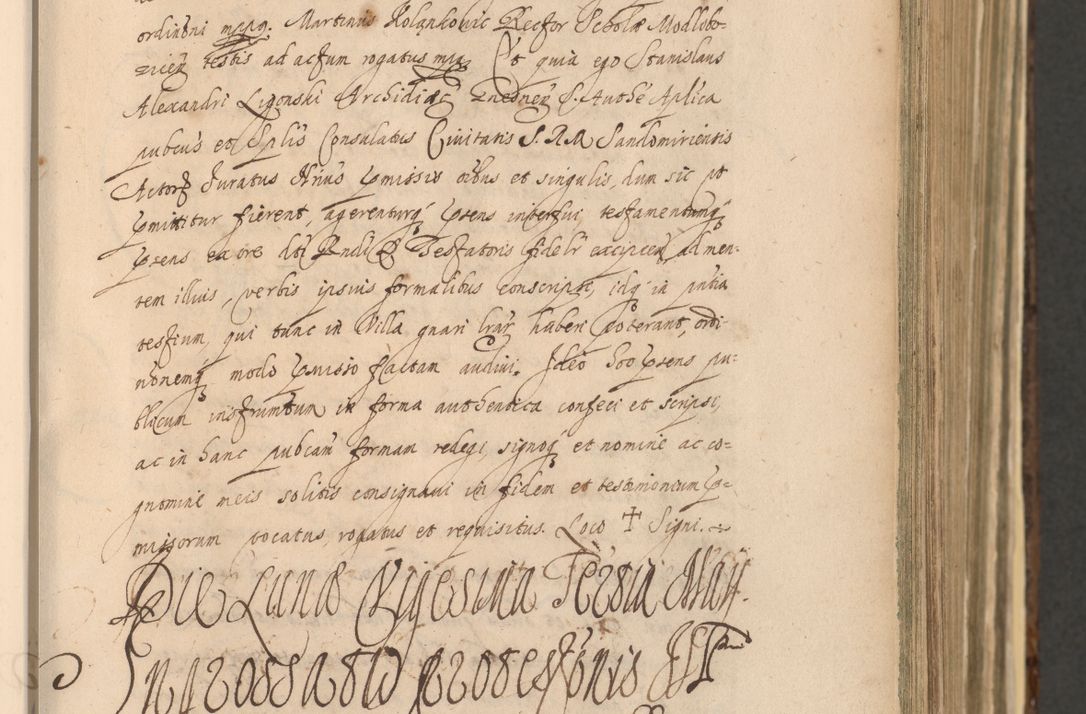 ordinōni mppa. Martinus Kolankovic Rector Scholæ Modlibo-
zicen testis ad actum rogatus mpa. Et quia ego Stanislaus
Alexandri Ligonski Archidiac S. Authē Aplica
pubcus et Consulatus Civitatis S. R. M. Sandomiriensis
Actorz Juratus Nrius pmissis oibus et singulis, dum sic ut
pmittitur fierent, agerenturq psens interfui, testamentumq
psens ex ore dti Rndi D Testatoris fideli excipien ad men-
tem illius, verbis ipsius formalibus conscripsi, idq in pntia
testium, qui tunc in Villa gnari lrar haberi poterant, ordi-
nōnemq modo pmisso factam audivi. Ideo hoc psens pu-
blicum instrumtum in forma authentica confeci et scripsi,
ac in hanc pubcam formam redegi, signoq et nomine ac co-
gnomine meis solitis consignavi in fidem et testimonium p-
missorum vocatus, rogatus et requisitus. Loco ✝ Signi.
Die Lunæ Vigesima Tertia Maij.
In